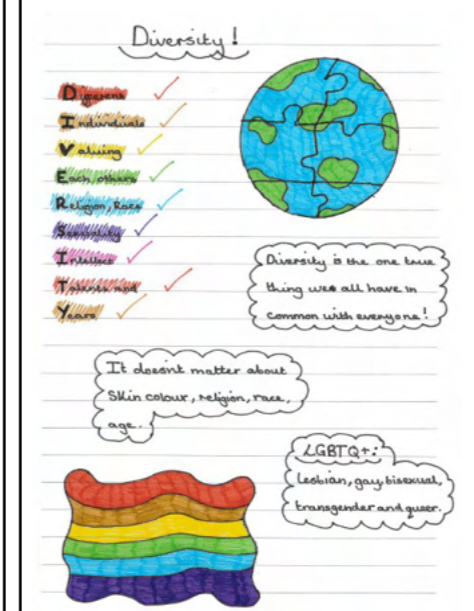 Diversity!
Different
Individuals
Valuing
Each others
Religion, Race
Sexuality
Intellect
Talents and
Years
Diversity is the one true
thing we all have in
common with everyone!
It doesnt matter about
Skin colour, religion, race,
age.
LGBTQ+:
Lesbian, gay, bisexual,
transgender and queer.